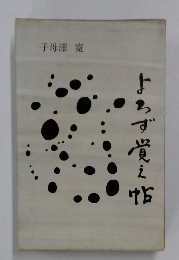 子母澤 寛
よろず覚え帖